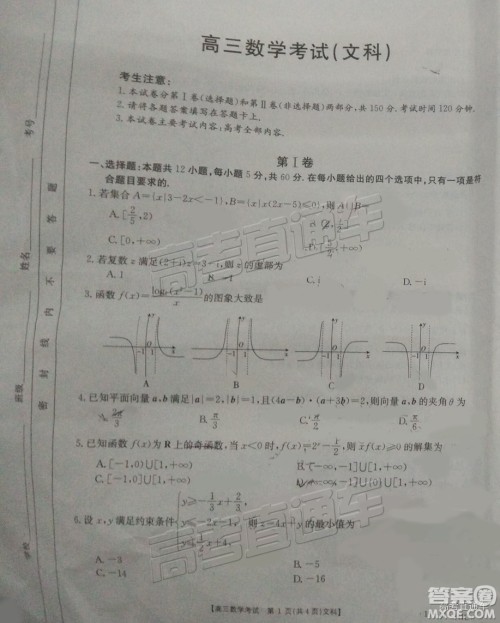 高三数学考试(文科)
考生注意:
1. 本试卷分第Ⅰ卷(选择题)和第Ⅱ卷(非选择题)两部分,共150分.考试时间120分钟.
2. 请将各题答案填写在答题卡上.
3. 本试卷主要考试内容:高考全部内容.
第Ⅰ卷
一、选择题:本题共12小题,每小题5分,共60分.在每小题给出的四个选项中,只有一项是符
合题目要求的.
1. 若集合A={x|3-2x<-1},B={x|x(2x-5)≤0},则A∪B=
A. [2/5,2)
C. [0,+∞)
2. 若复数z满足(2+i)z=3-i,则z的虚部为
A. 1 C. -1 D. -i
3. 函数f(x)= (x²-1)/x 的图象大致是
A B C D
4. 已知平面向量a,b满足|a|=2,|b|=1,且(4a-b)·(a+3b)=2,则向量a,b的夹角θ为
A. 2π/3 B. π/3 C. π/2 D. π/6
5. 已知函数f(x)为R上的奇函数,当x<0时,f(x)=2ˣ-1/2,则xf(x)≥0的解集为
A. [-1,0)∪[1,+∞) -1]∪[1,+∞)
C. [-1,0]∪[1,+∞) -1]∪[1,+∞)
6. 设x,y满足约束条件{y≥-1/3x+2/3, y≤-2x-1, y≤ 则z=4x+y的最小值为
A. -3 B. -5
C. -14 D. -16
【高三数学考试 第1页(共4页)文科】
考号
姓名
班级
学校
密封线内不要答题
高考直通车
高考直通车
答案圈